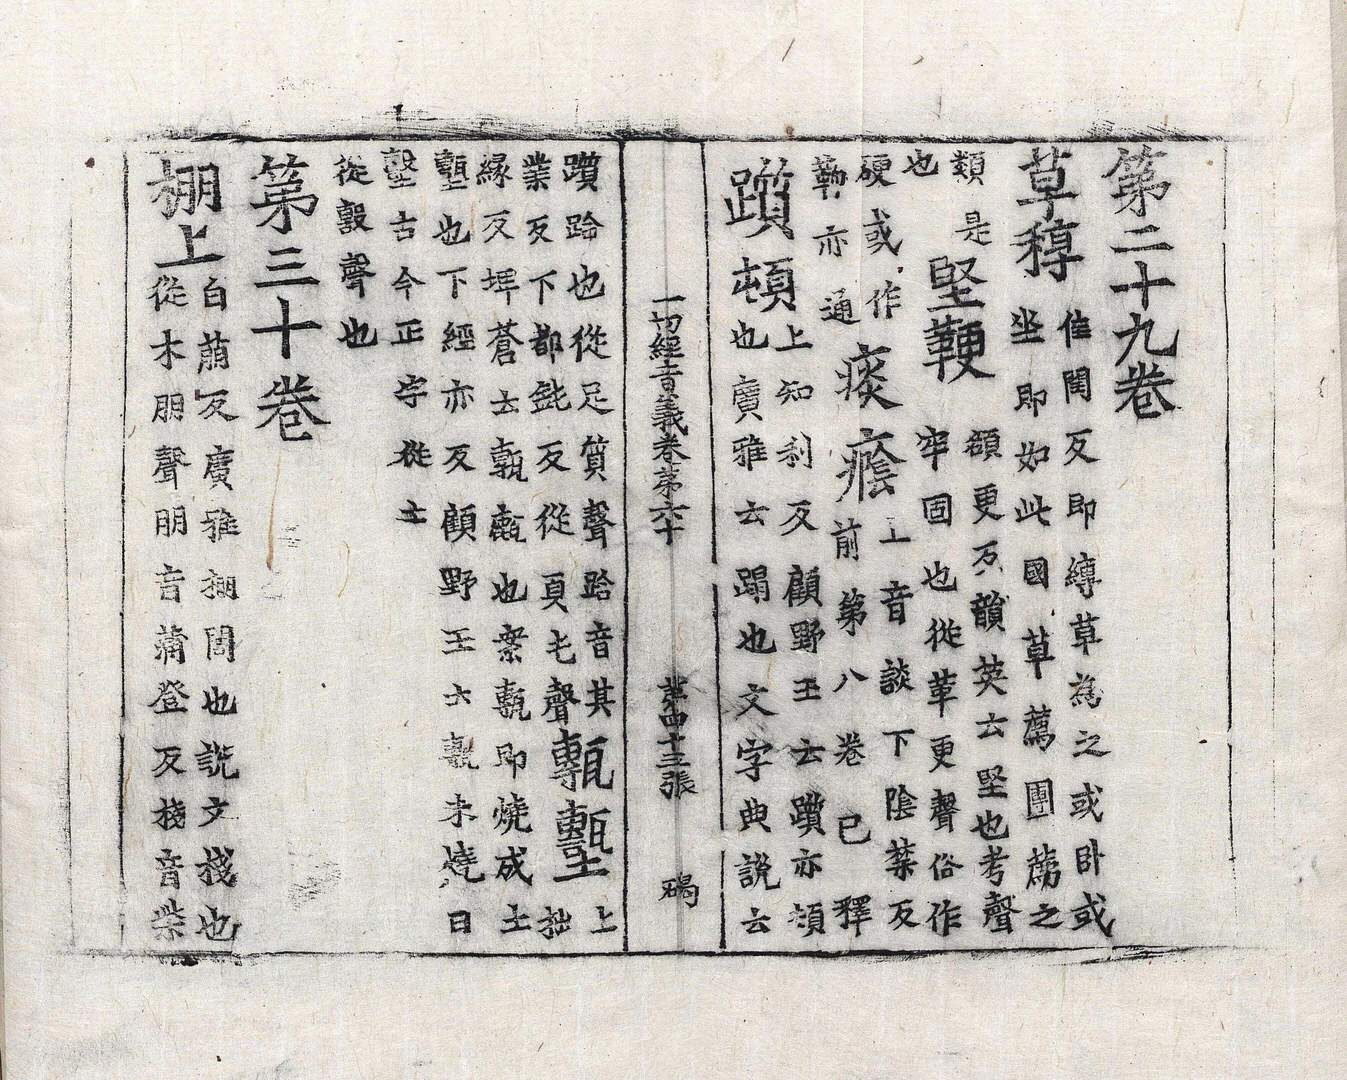 第二十九卷
草稕
佳閏反即縳草為之或卧或
坐即如此國草薦團薦之
類是
也
堅鞕
額更反韻英云堅也考聲
牢固也從革更聲俗作
硬或作
亦通
痰癊
上音談下陰禁反
前第八卷已釋
躓頓
上知利反顧野王云躓亦頓
也廣雅云蹋也文字典說云
一切經音義卷第六十 第四十三張 碣
躓跲也從足質聲跲音其
業反下都鈍反從頁屯聲
甎墼
上
拙
緣反埤蒼云甎甋也案甎即燒成土
墼也下經亦反顧野王云甎未燒曰
墼古今正字從土
從毄聲也
第三十卷
棚上
白萠反廣雅棚閣也說文棧也
從木朋聲朋音蒲登反棧音柴